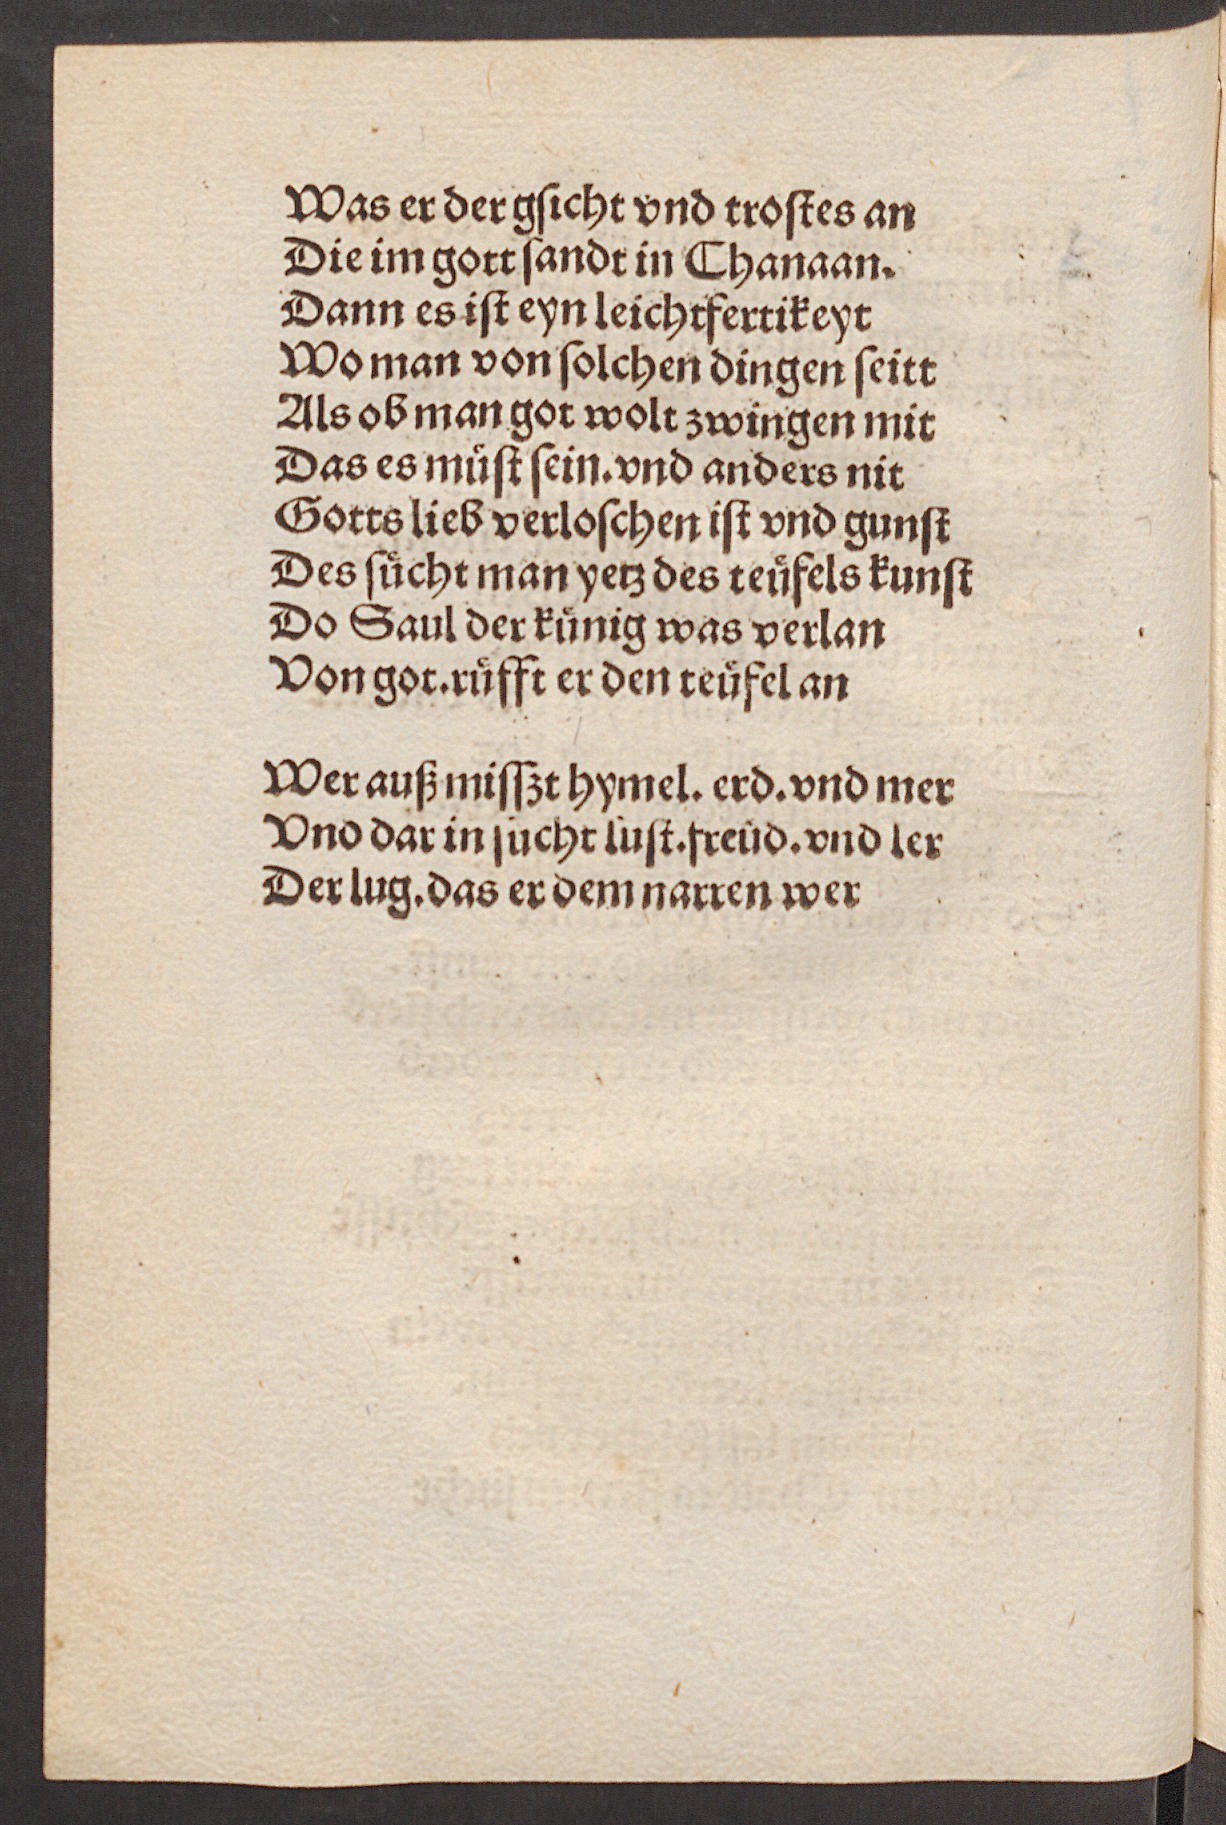 Was er der gſicht vnd troſtes an
Die im gott ſandt in Chanaan.
Dann es iſt eyn leichtfertikeyt
Wo man von ſolchen dingen ſeitt
Als ob man got wolt zwingen mit
Das es müſt ſein. vnd anders nit
Gotts lieb verloſchen iſt vnd gunſt
Des ſücht man yetz des teüfels kunſt
Do Saul der künig was verlan
Von got. rüfft er den teüfel an
Wer auß miſſzt hymel. erd. vnd mer
Vnd dar in ſücht luſt. freüd. vnd ler
Der lug. das er dem narren wer